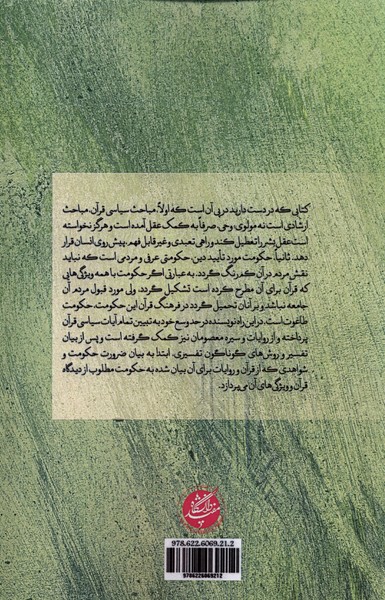 کتابی که در دست دارید در پی آن است که اولاً، مباحث سیاسی قرآن، مباحث
ارشادی است نه مولوی، وحی، صرفاً به کمک عقل آمده است و هرگز نخواسته
است عقل بشر را تعطیل کند و راهی تعبدی و غیر قابل فهم، پیش روی انسان قرار
دهد. ثانیاً، حکومت مورد تأیید دین، حکومتی عرفی و مردمی است که نباید
نقش مردم در آن کم رنگ گردد. به عبارتی اگر حکومت با همه ویژگی‌هایی
که قرآن برای آن مطرح کرده است تشکیل گردد، ولی مورد قبول مردم آن
جامعه نباشد و بر آنان تحمیل گردد در فرهنگ قرآن این حکومت، حکومت
طاغوت است. در این راه نویسنده در حد وسع خود به تبیین تمام آیات سیاسی قرآن
پرداخته و از روایات و سیره معصومان نیز کمک گرفته است و پس از بیان
تفسیر و روش‌های گوناگون تفسیری، ابتدا به بیان ضرورت حکومت و
شواهدی که از قرآن و روایات برای آن بیان شده به حکومت مطلوب از دیدگاه
قرآن و ویژگی‌های آن می‌پردازد.
دانشگاه
مفید
978.622.6069.21.2
9786226069212